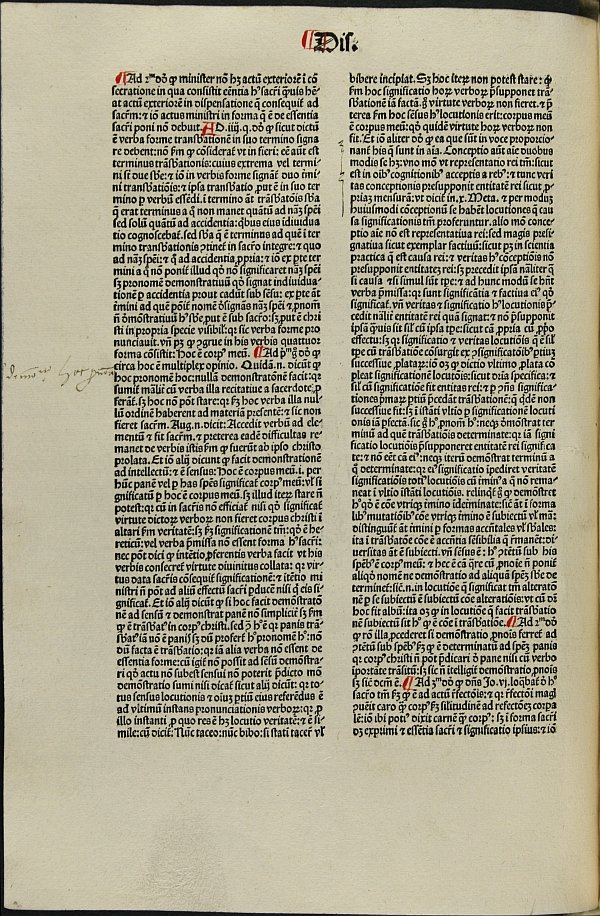 Dis.
Ad 2m dō ꝙ minister nō hȝ actū exteriorē i cō
secratione in qua consistit eēntia hꝰ sacr̄i ꝙuis hē
at actū exteriorē in dispensatione q̄ consequit̄ ad
sacr̄m: ⁊ iō actus ministri in forma q̄ ē de essentia
sacr̄i poni nō debuit. AD .iiij. q. dō ꝙ sicut dictū
ē verba forme transb̄ationē in suo termino signa
re debent: nō fm̄ ꝙ cōsiderat̄ vt in fieri: eē aūt est
terminus trāsb̄ationis: cuius extrema vel termi-
ni sūt due sb̄e: ⁊ iō in verbis forme signāt̄ duo t̄mi
ni transb̄atiōis: ⁊ ipsa trāsb̄atio ꝓut ē in suo ter
mino ꝑ verbū essēdi. i termino āt trāsb̄atōis sb̄a
q̄ erat terminus a q̄ non manet quātū ad nāȝ sp̄ei
sed solū quātū ad accidentia: ꝗbus eius idiuidua
tio cognoscebat̄. sed sb̄a q̄ ē terminus ad quē i ter
mino transb̄ationis ꝯtinet̄ in sacr̄o integre: ⁊ quo
ad nāȝ sp̄ei: ⁊ q̄ ad accidentia ꝓpria: ⁊ iō ex ꝑte ter
mini a q̄ nō ponit̄ illud qd̄ nō significaret nāȝ sp̄ei
sȝ pronomē demonstratiuū qd̄ signat indiuidua-
tionē ꝑ accidentia prout cadūt sub sēsu: ex ꝑte āt
t̄mini ad quē pōit̄ nomē dsignās nāȝ sp̄ei ⁊ ꝓnom̄
nō dmōstratiuū hꝰ sb̄e put ē sub sacro: sȝ put ē chri
sti in propria specie visibilꝭ: qr sic verba forme pro
nunciauit. vn̄ pȝ ꝙ ꝯgrue in his verbis quattuor
forma cōsistit: Hoc ē corpꝰ meū. Ad pm̄ gͦ dō ꝙ
circa hoc ē multiplex opinio. Quidā.n. dicūt ꝙ
hoc pronomē hoc: nullā demonstratōnē facit: qr
sumit̄ mālr̄: cū verba illa recitatiue a sacerdote ꝓ
ferāt̄. sȝ hoc nō pōt stare: qr fȝ hoc verba illa nul-
lū ordinē haberent ad materiā p̄sentē: ⁊ sic non
fieret sacr̄m. Aug.n. dicit: Accedit verbū ad ele-
mentū ⁊ fit sacr̄m. ⁊ preterea eadē difficultas re-
manet de verbis istis fm̄ ꝙ fuerūt ab ipso christo
prolata. Et iō alij dicunt ꝙ facit demonstrationē
ad intellectū: ⁊ ē sensus: Hoc ē corpus meū. i. per
hūc panē vel ꝑ has sp̄es significat̄ corpꝰ meū: vl̄ si
gnificatū ꝑ hoc ē corpus meū. sȝ illud iterȝ stare nō
potest: qr cū in sacris nō efficiat̄ nisi qd̄ significat̄
virtute dictorȝ verborȝ non fieret corpus christi i
altari fm̄ veritatē: sȝ fȝ significationē tm̄: qd̄ ē he-
reticū: vel verba p̄missa nō essent forma hꝰ sacr̄i:
nec pōt dici ꝙ intētio ꝓferentis verba facit vt his
verbis consecret̄ virtute diuinitus collata: qr vir-
tus data sacr̄is cōsequit̄ significationē: ⁊ itētio mi
nistri nō pōt ad aliū effectū sacr̄i ꝑducē nisi q̄ eis si
gnificat̄. Et iō alij dicūt ꝙ si hoc facit demonstratō
nē ad sensū ⁊ demonstrat panē nō simpliciter sȝ fm̄
ꝙ ē trāsb̄at̄ in corpꝰ christi. sed ꝯ hꝰ ē: qr panis trā-
sb̄at̄ iā nō ē panis: sȝ dū profert̄ hꝰ pronomē hꝰ: nō
dū facta ē trāsb̄atio: qr iā alia verba nō essent de
essentia forme: cū igit̄ nō possit ad sēsū demōstra-
ri qd̄ actu nō subest sensui nō poterit p̄dicto mō
demonstratio sumi nisi dicat̄ sicut alij dicūt: qr to-
tus sensus locutionis ⁊ oīus ptiū eius referēdus ē
ad vltimū instans pronunciationis verborȝ: qr ꝓ
illo instanti ꝓ quo res ē hȝ locutio veritatē: ⁊ ē si-
mile: cū dicit̄: Nūc taceo: nūc bibo: si stati tacer vl̄
bibere incipiat. Sȝ hoc iterȝ non potest stare: qr
fm̄ hoc significatio horȝ verborȝ p̄supponet trā
sb̄ationē iā factā. gͦ virtute verborȝ non fieret. ⁊ p̄
terea fm̄ hoc sēsus hꝰ locutionis erit: corpus meū
ē corpus meū: qd̄ quidē virtute horȝ verborȝ non
fit. Et iō aliter dō ꝙ ea que sūt in voce proportio
nant̄ his q̄ sunt in aīa. Conceptio aūt aīe duobus
modis se hȝ: vno mō vt representatio rei tm̄: sicut
est in oībꝰ cognitionibꝰ acceptis a rebꝰ: ⁊ tunc veri
tas conceptionis presupponit entitatē rei sicut ꝓ
priaȝ mensurā: vt dicit̄ in .x. Meta. ⁊ per modūȝ
huiusmodi cōceptionū se habēt locutiones q̄ cau
sa significationis tm̄ proferuntur. alio mō conce-
ptio aīe nō est representatiua rei: sed magis presi-
gnatiua sicut exemplar factiuū: sicut pȝ in scientia
practica q̄ est causa rei: ⁊ veritas hꝰ cōceptiōis nō
presupponit entitateȝ rei: sȝ precedit ipsā nāliter q̄
si causa ⁊ si simul sūt tpe: ⁊ ad hunc modū se hn̄t
verba p̄missa: qr sunt significantia ⁊ factiua eiꝰ qd̄
significat̄. vn̄ veritas ⁊ significatio hꝰ locutionis p̄
cedit nālit̄ entitatē rei quā signat: ⁊ nō p̄supponit
ipsā q̄uis sit sil̄ cū ipsa tpe: sicut cā ꝓpria cū ꝓprio
effectu: sȝ qr significatio ⁊ veritas locutiōis q̄ ē sil̄
tpe cū trāsb̄atiōe cōsurgit ex ꝯsignificatiōibꝰ ptiuȝ
successiue ꝓlatarȝ: iō oȝ ꝙ dictio vltimo ꝓlata cō
pleat significationē locutōis: sicut dr̄a specifica: ⁊
sil̄ cū significatiōe sit entitas rei: ⁊ pͥus significa-
tiones pmarȝ ptiū p̄cedāt trāsb̄ationē: q̄ qd̄ē non
successiue fit: sȝ i istāti vltio ꝓ significationē locuti
onis iā ꝑfectā. sic gͦ fȝ hꝰ pnom̄ hꝰ: neqȝ dmōstrat ter
minū ad quē trāsb̄atiōis determinate: qr iā signi
ficatio locutiōis p̄supponeret entitatē rei significa
te: ⁊ nō eēt cā eiꝰ: neqȝ iterū demōstrat terminū a
q̄ determinate: qr eiꝰ significatio ipediret veritatē
significatiōis totiꝰ locutiōis cū t̄minꝰ a q̄ nō rema-
neat i vltio istāti locutiōis. relinqt̄ gͦ ꝙ demōstret
hꝰ qd̄ ē cōe vtriqȝ t̄mino ideterminate: sic āt i forma
libꝰ mutatiōibꝰ cōe vtriqȝ t̄mino ē subiectū vl̄ mā:
distinguūt̄ āt t̄mini ꝑ formas accn̄tales vl̄ sb̄ales:
ita i trāsb̄atiōe cōe ē accn̄tia sēsibilia q̄ rīmanēt: di-
uersitas āt ē subiecti. vn̄ sēsus ē: hꝰ ꝯtētū sub his
sp̄ebꝰ ē corpꝰ meū: ⁊ hec ē cā qre cū ꝓnoīe nō ponit̄
aliqd̄ nomē ne demōstratio ad aliquā sp̄ēȝ sb̄e de
terminet̄: sic.n. in locutiōe q̄ significat tm̄ alteratō
nē ꝑ se subiectū ē subiectū cōe alteratiōis: vt cū dr̄
hoc fit albū: ita oȝ ꝙ in locutiōe q̄ facit trāsb̄atio
nē subiectū sit hꝰ ꝙ ē cōe i trāsb̄atiōe. Ad 2m dō
ꝙ rō illa ꝓcederet si demōstratio ꝓnois ferret̄ ad
ꝯtētū sub sp̄ebꝰ fȝ ꝙ ē determinatū ad sp̄ēȝ panis
qr corpꝰ christi nō pōt p̄dicari d̄ pane nisi cū verbo
iportāte trāsitū: sȝ sic nō itelligit̄ demōstratio ꝓnois
sȝ sic dcm̄ ē. Ad 3m dō ꝙ dn̄s Jo.vj. loqbat̄ d̄ hꝰ
sacr̄o tm̄ fȝ ꝙ ē ad actū rfectōis: ⁊ qr rfectōi magꝭ
ꝯuēit caro ꝙ corpꝰ fȝ silitudinē ad refectōeȝ corpa
lē: iō ibi potiꝰ dixit carnē ꝙ corpꝰ: sȝ i forma sacr̄i
oȝ exprimi ⁊ essētia sacr̄i ⁊ significatio ipsius: ⁊ iō